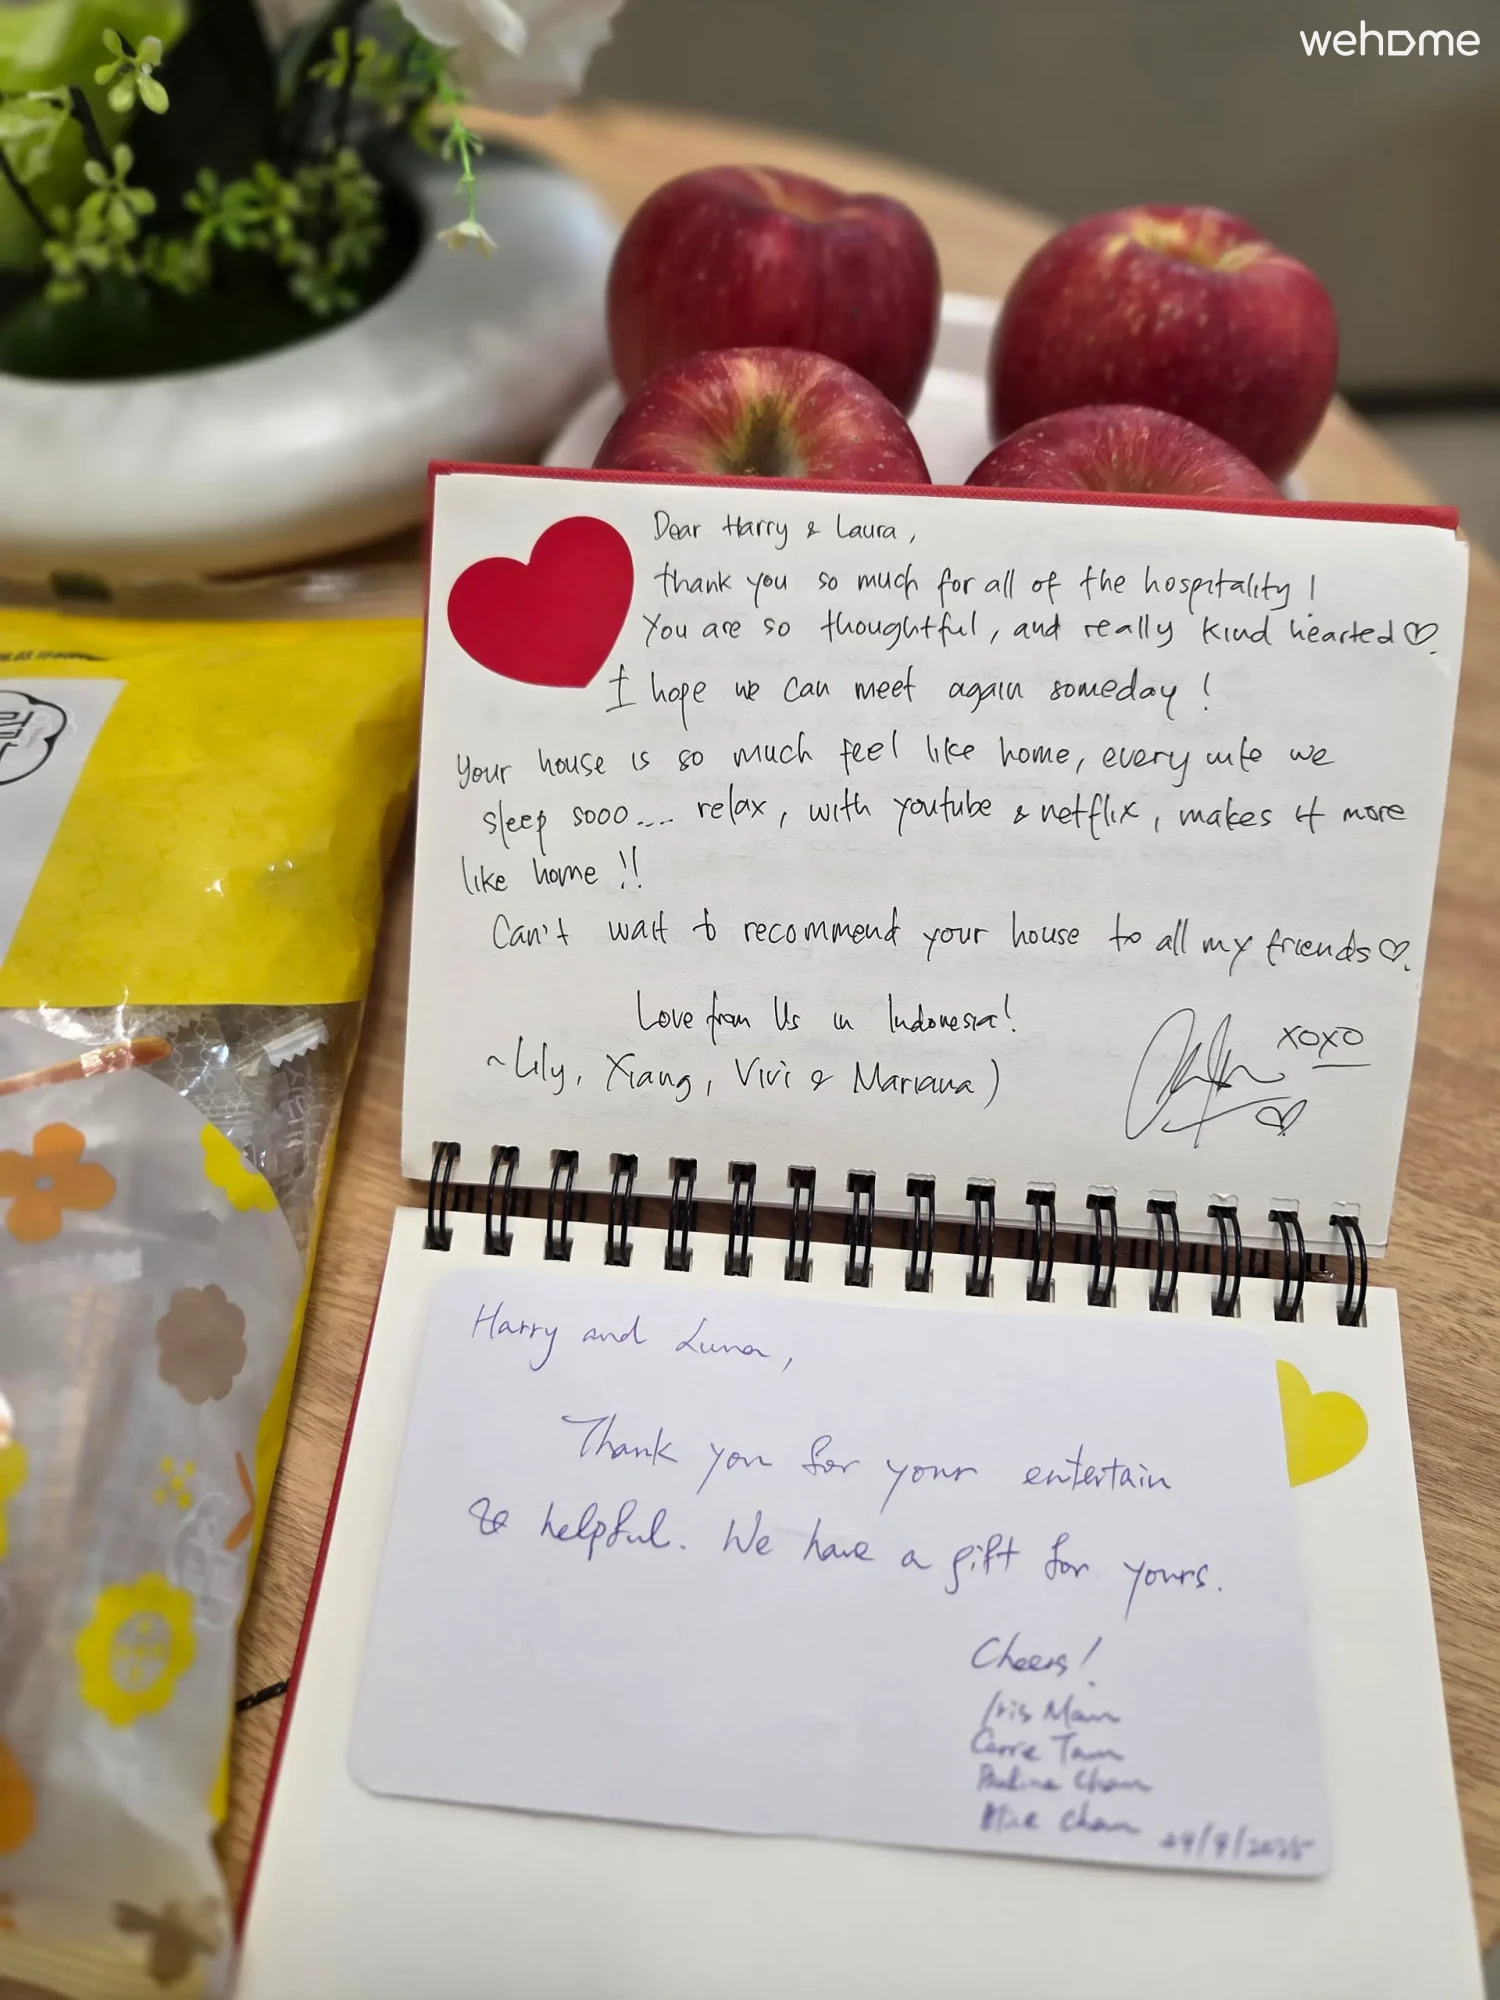 wehome
Dear Harry & Laura,
thank you so much for all of the hospitality!
You are so thoughtful, and really kind hearted♡.
I hope we can meet again someday!
Your house is so much feel like home, every nite we
sleep sooo... relax, with youtube & netflix, makes it more
like home!!
Can't wait to recommend your house to all my friends♡.
Love from Us in Indonesia!
~Lily, Xiang, Vivi & Mariana)
XOXO
Harry and Luna,
Thank you for your entertain
& helpful. We have a gift for yours.
Cheers!
Iris Man
Carrie Tam
Pauline Chan
Chan
29/9/2025